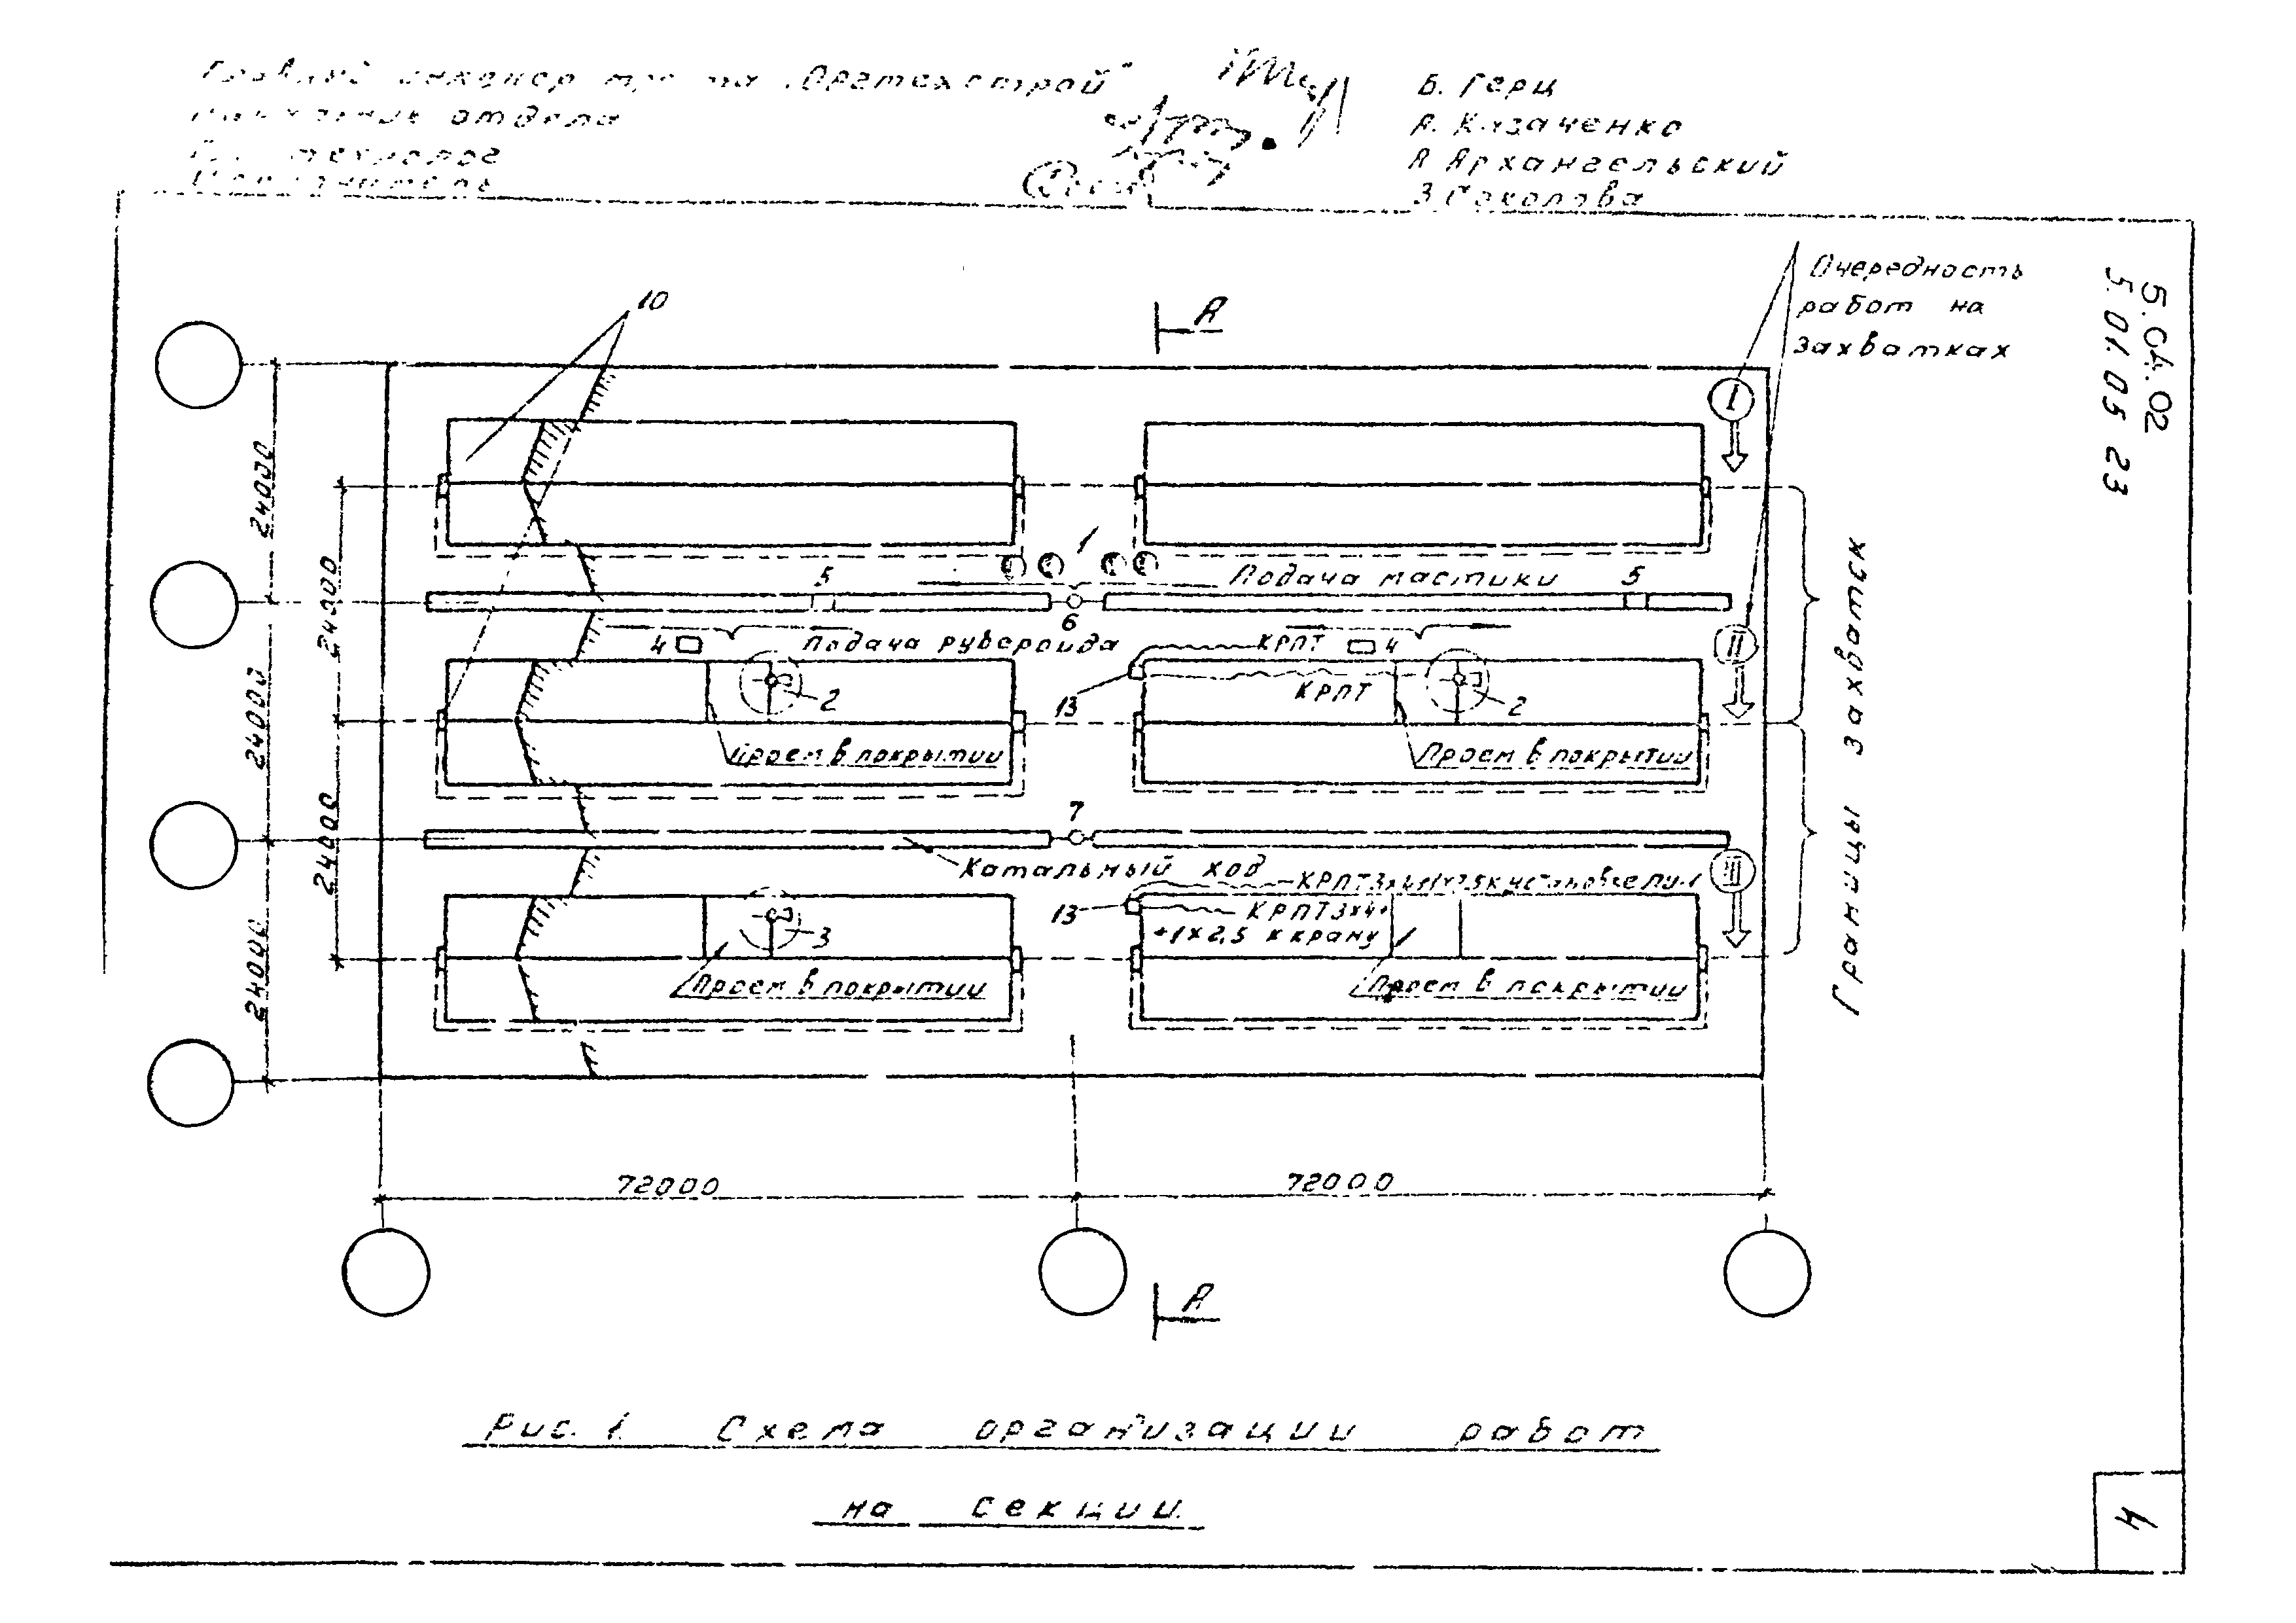 Главный инженер треста „Оргтехстрой“ Б. Герц
Начальник отдела А. Казаченко
технолог А Архангельский
Исполнитель З Соколова
5.04.02
5. 01. 05 23
Очередность
работ на
захватках
10
А
I
24000
24000
1
5
Подача мастики
5
6
4
Подача рубероида
КРПТ
4
II
13
КРПТ
2
2
24000
Проем в покрытии
Проем в покрытии
Границы захваток
7
24000
Катальный ход
КРПТ3х4+1х2,5 к установке ПУ-1
III
13
КРПТ3х4+
+1х2,5 к крану
3
24000
Проем в покрытии
Проем в покрытии
72000
72000
А
Рис. 1. Схема организации работ
на секции.
4